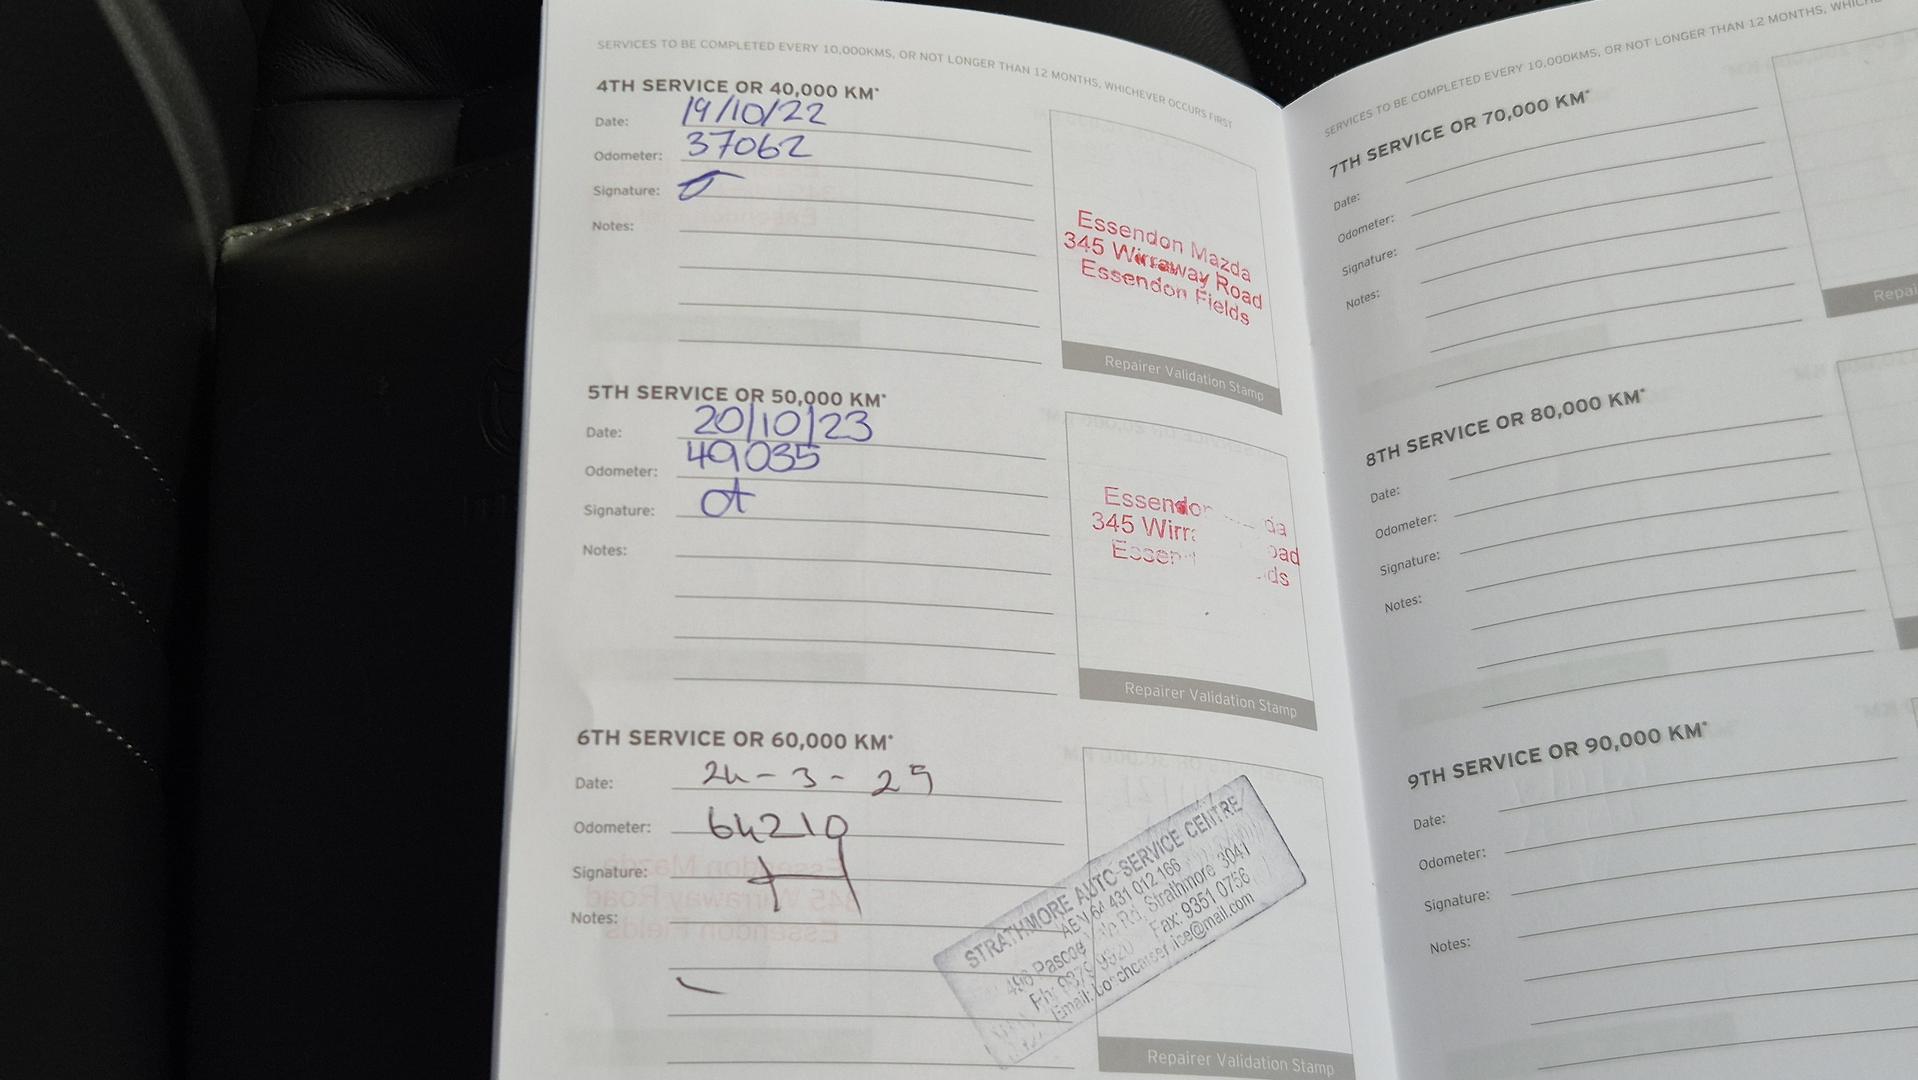 SERVICES TO BE COMPLETED EVERY 10,000KMS, OR NOT LONGER THAN 12 MONTHS, WHICHEVER OCCURS FIRST
4TH SERVICE OR 40,000 KM*
Date: 19/10/22
Odometer: 37062
Signature:
Notes:
Essendon Mazda
345 Wirraway Road
Essendon Fields
Repairer Validation Stamp
5TH SERVICE OR 50,000 KM*
Date: 20/10/23
Odometer: 49035
Signature:
Notes:
345
Repairer Validation Stamp
6TH SERVICE OR 60,000 KM*
Date: 24-3-25
Odometer: 64210
Signature:
Notes:
STRATHMORE AUTO SERVICE CENTRE
ABN 64 431 012 166
Pascoe Rd, Strathmore 3041
Ph: 9379 9320 Fax: 9351 0756
Email:
Repairer Validation Stamp
SERVICES TO BE COMPLETED EVERY 10,000KMS, OR NOT LONGER THAN 12 MONTHS,
7TH SERVICE OR 70,000 KM*
Date:
Odometer:
Signature:
Notes:
8TH SERVICE OR 80,000 KM*
Date:
Odometer:
Signature:
Notes:
9TH SERVICE OR 90,000 KM*
Date:
Odometer:
Signature:
Notes: